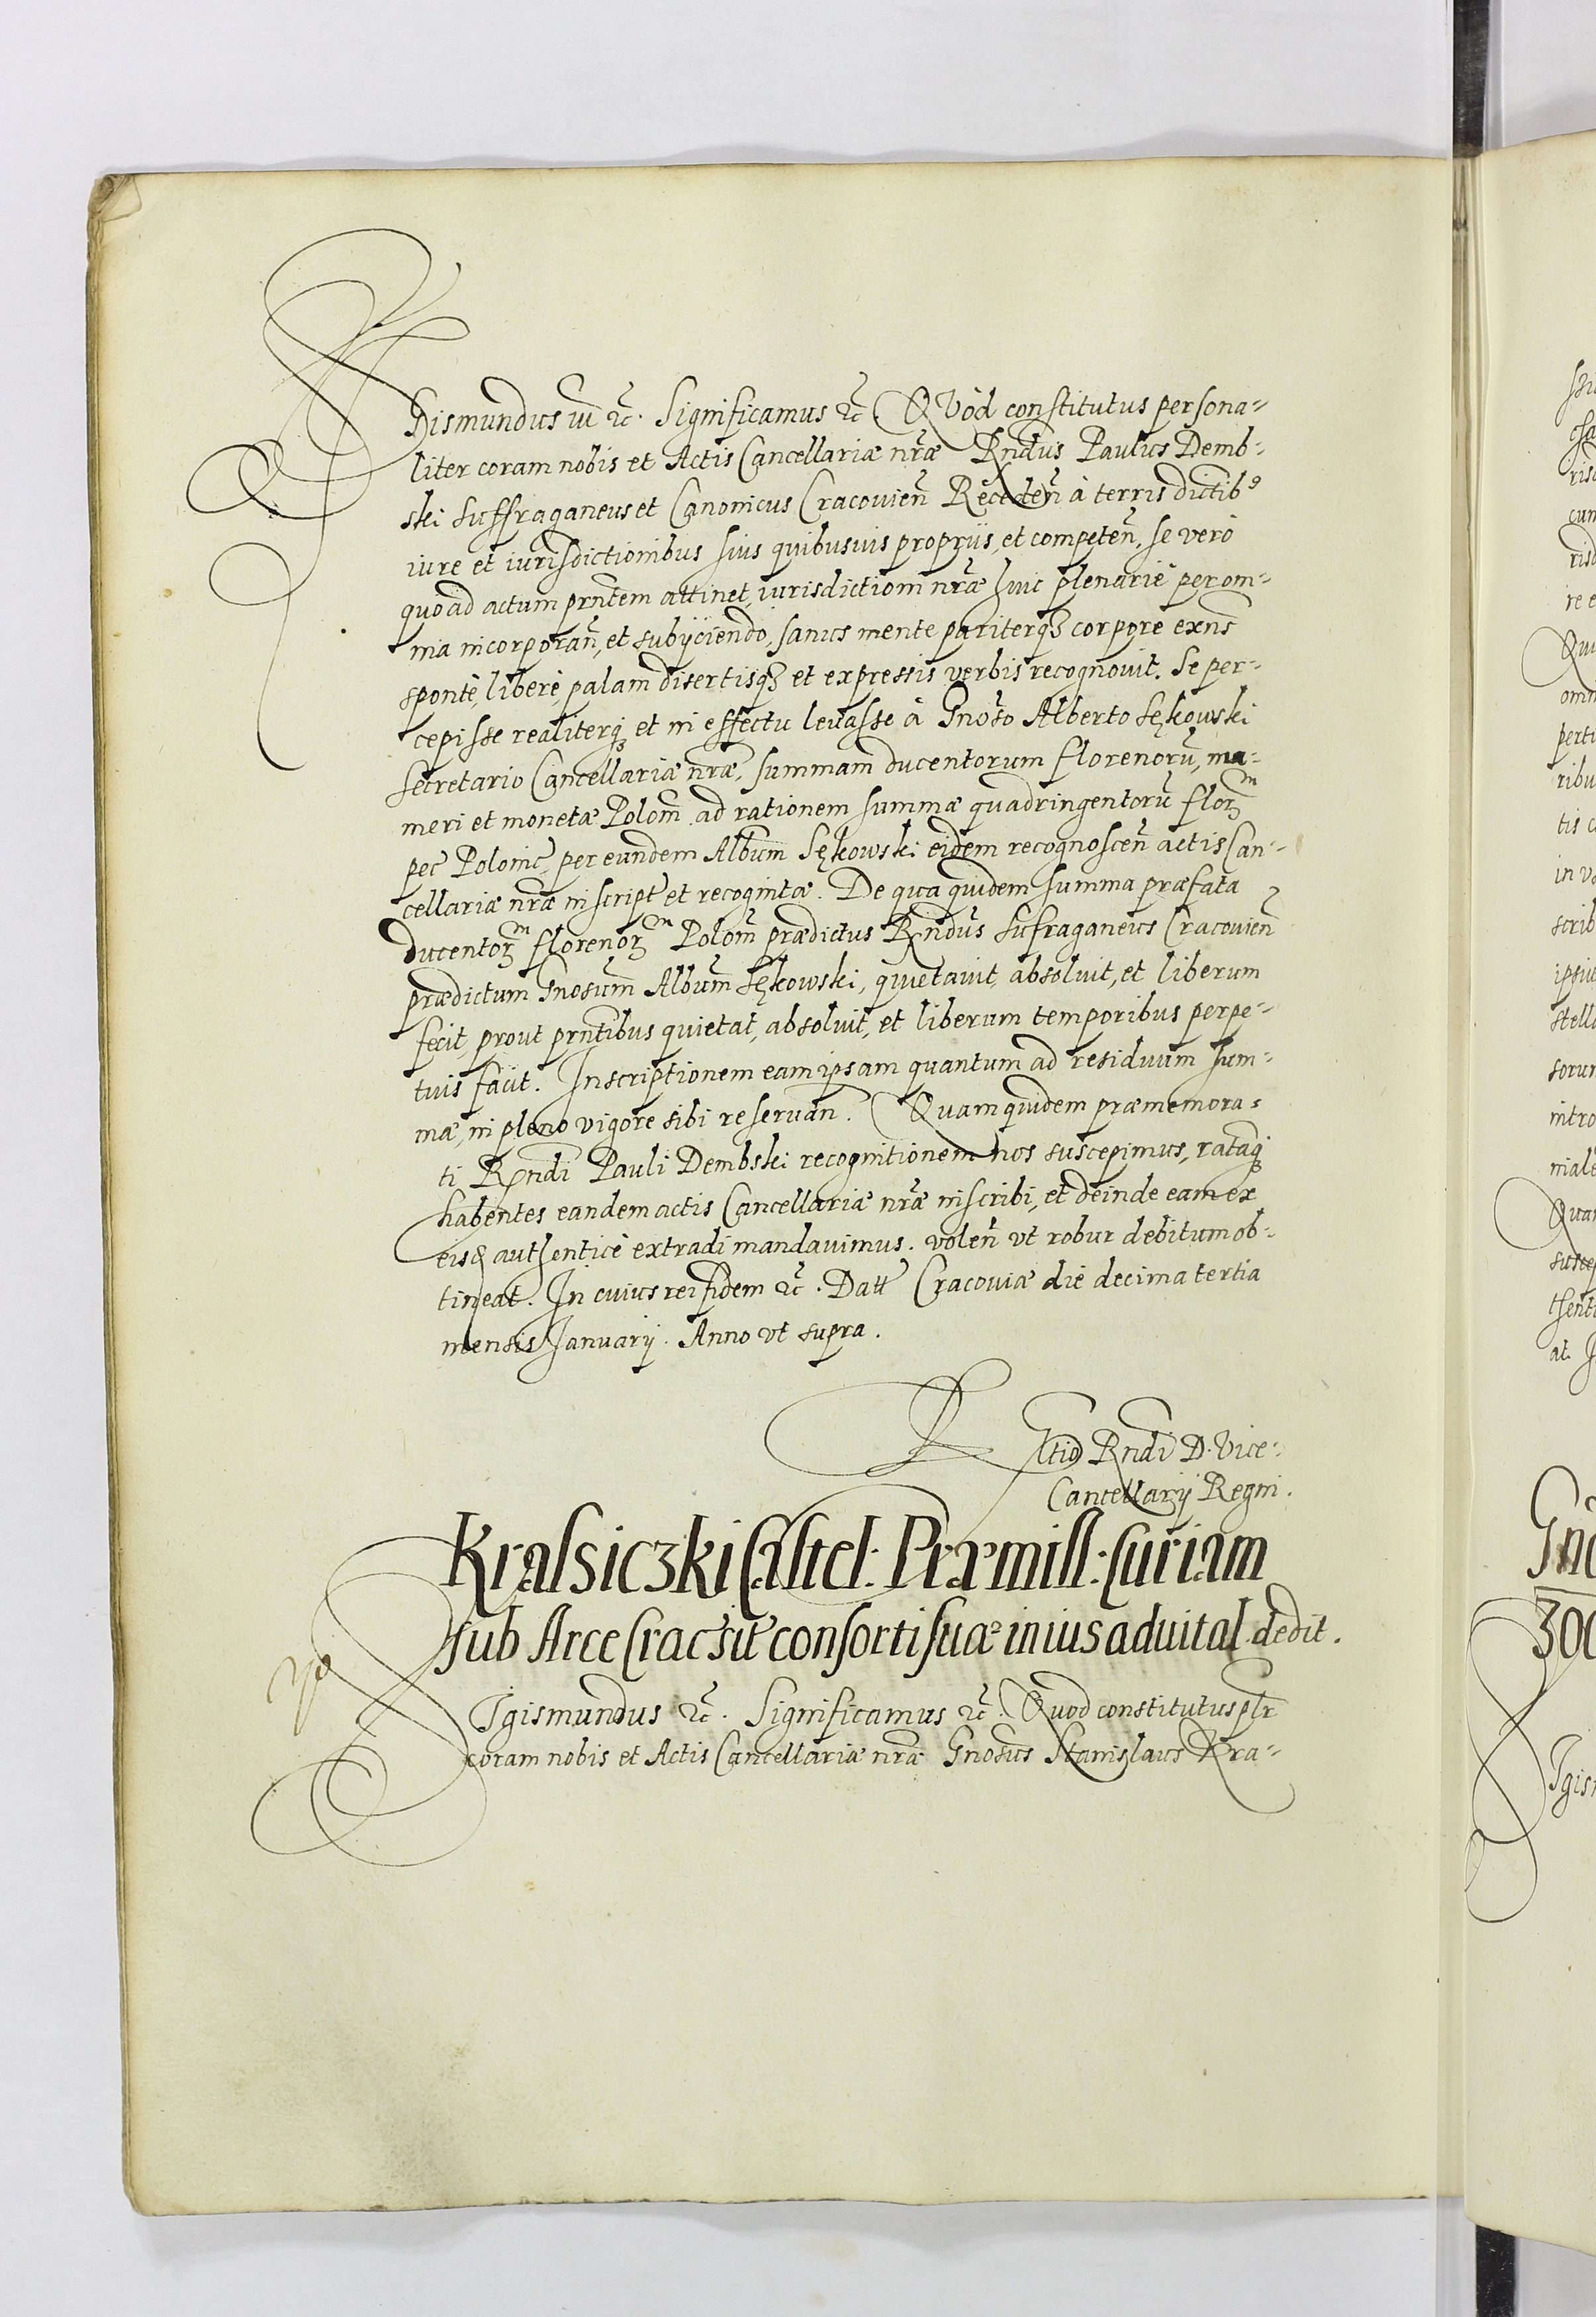 Sigismundus iii etc. Significamus etc. Quod constitutus persona-
liter coram nobis et Actis Cancellariæ nr̃æ Rndus Paulus Demb-
ski Suffraganeus et Canonicus Cracovien̄ Receden̄ à terris dictib9
iure et iurisdictionibus suis quibusuis proprijs, et competen̄, se verò
quo ad actum prn̄tem attinet, iurisdictioni nr̃æ huic plenariè per om-
nia incorporan̄, et subijciendo, sanus mente pariterq3 corpore exn̄s
spontè, liberè, palam disertisq3 et expressis verbis recognouit. Se per-
cepisse realiterq3 et in effectu leuasse à Gnoso Alberto Sękowski
Secretario Cancellariæ nr̃æ, summam ducentorum florenorū, nu-
meri et monetæ Polon̄ ad rationem summæ quadringentorū flor3m
pec Polonic̄, per eundem Albūm Sękowski eidem recognoscen̄ actis Can-
cellariæ nr̃æ inscript̄ et recognitæ. De qua quidem summa præfata
ducentor3m florenor3m Polon̄ prædictus Rndus Sufraganeus Cracovien̄
prædictum Gnosum Albūm Sękowski, quietauit, absoluit, et liberum
fecit, prout prn̄tibus quietat, absoluit, et liberum temporibus perpe-
tuis facit. Inscriptionem eam ipsam quantum ad residuum sum-
mæ, in pleno vigore sibi reseruan̄. Quam quidem præmemora-
ti Rndi Pauli Dembski recognitionem nos suscepimus, ratāq3
habentes eandem actis Cancellariæ nr̃æ inscribi, et deinde eam ex
eisd authenticè extradi mandauimus. volen̄ vt robur debitum ob-
tineat. In cuius rei fidem etc. Datt Cracoviæ die decima tertia
mensis Januarij. Anno vt supra.
Rltio Rndi D. Vice-
Cancellarij Regni.
Krasiczki Castel: Præmisl: Curiam
sub Arce Crac sit̄ consorti suæ in ius aduital. dedit.
Sigismundus etc. Significamus etc. Quod constitutus plr
coram nobis et Actis Cancellariæ nr̃æ Gnosus Stanislaus Kra-